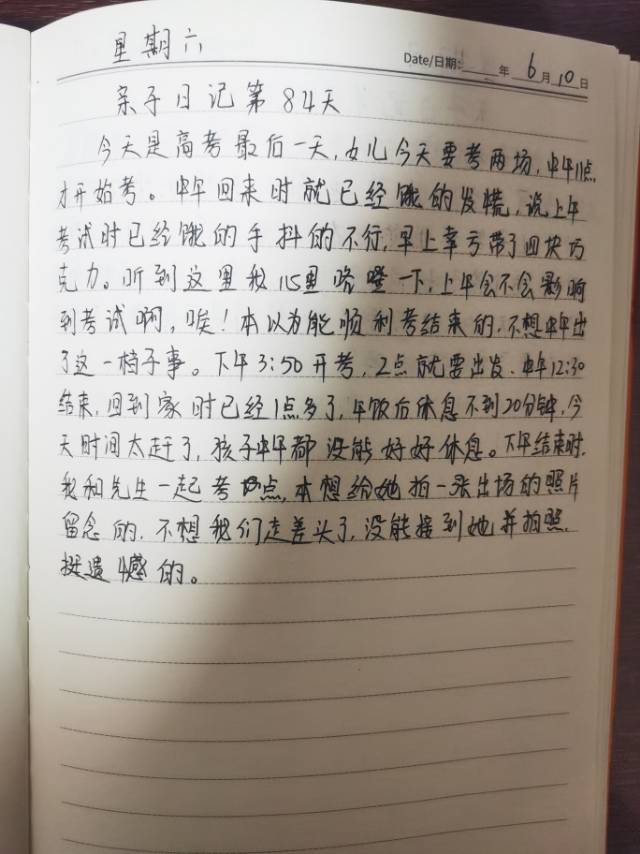 星期六
Date/日期: 年 6 月 10 日
亲子日记第84天
今天是高考最后一天,女儿今天要考两场,中午11点
才开始考。中午回来时就已经饿的发慌,说上午
考试时已经饿的手抖的不行,早上幸亏带了四块巧
克力。听到这里我心里咯噔一下,上午会不会影响
到考试啊,唉!本以为能顺利考结束的,不想中午出
了这一档子事。下午3:50开考,2点就要出发,中午12:30
结束,回到家时已经1点多了,午饭后休息不到20分钟,今
天时间太赶了,孩子中午都没能好好休息。下午结束时,
我和先生一起考点,本想给她拍一张出场的照片
留念的,不想我们走差头了,没能接到她并拍照,
挺遗憾的。